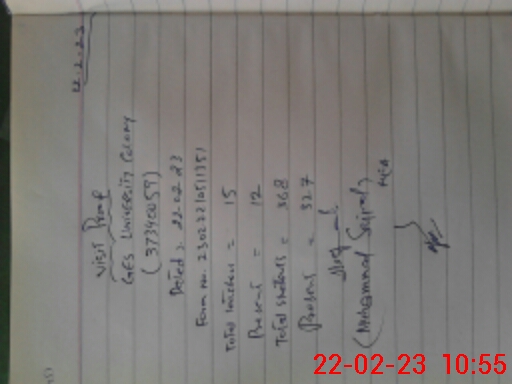 22.2.23
Visit Proof
GES University Colony
(37340059)
Dated: 22-02-23
Form no. 23022210511351
Total teachers = 15
Present = 12
Total students = 368
Present = 327
(Mohammad Sajjad)
MEA
22-02-23 10:55